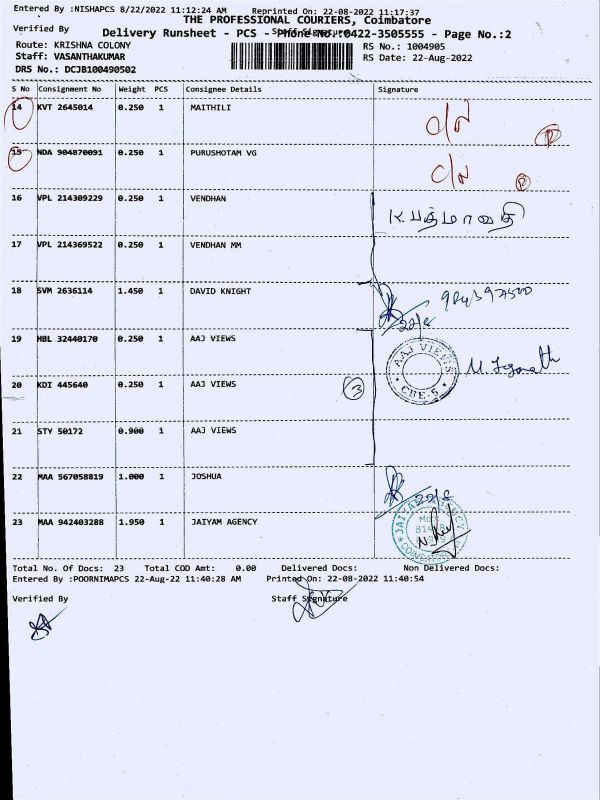 Entered By :NISHAPCS 8/22/2022 11:12:24 AM Reprinted On: 22-08-2022 11:17:37
THE PROFESSIONAL COURIERS, Coimbatore
Verified By Staff Signature
Delivery Runsheet - PCS - Phone No.:0422-3505555 - Page No.:2
Route: KRISHNA COLONY RS No.: 1004905
Staff: VASANTHAKUMAR RS Date: 22-Aug-2022
DRS No.: DCJB100490502
S No Consignment No Weight PCS Consignee Details Signature
14 KVT 2645014 0.250 1 MAITHILI
15 NDA 904870091 0.250 1 PURUSHOTAM VG
16 VPL 214309229 0.250 1 VENDHAN
K. பத்மாவதி
17 VPL 214369522 0.250 1 VENDHAN MM
18 SVM 2636114 1.450 1 DAVID KNIGHT
22/8
19 HBL 32440170 0.250 1 AAJ VIEWS
AAJ VIEWS
CBE-5
20 KDI 445640 0.250 1 AAJ VIEWS
3
21 STY 50172 0.900 1 AAJ VIEWS
22 MAA 567058819 1.000 1 JOSHUA
22/8
23 MAA 942403288 1.950 1 JAIYAM AGENCY
Total No. Of Docs: 23 Total COD Amt: 0.00 Delivered Docs: Non Delivered Docs:
Entered By :POORNIMAPCS 22-Aug-22 11:40:28 AM Printed On: 22-08-2022 11:40:54
Verified By Staff Signature